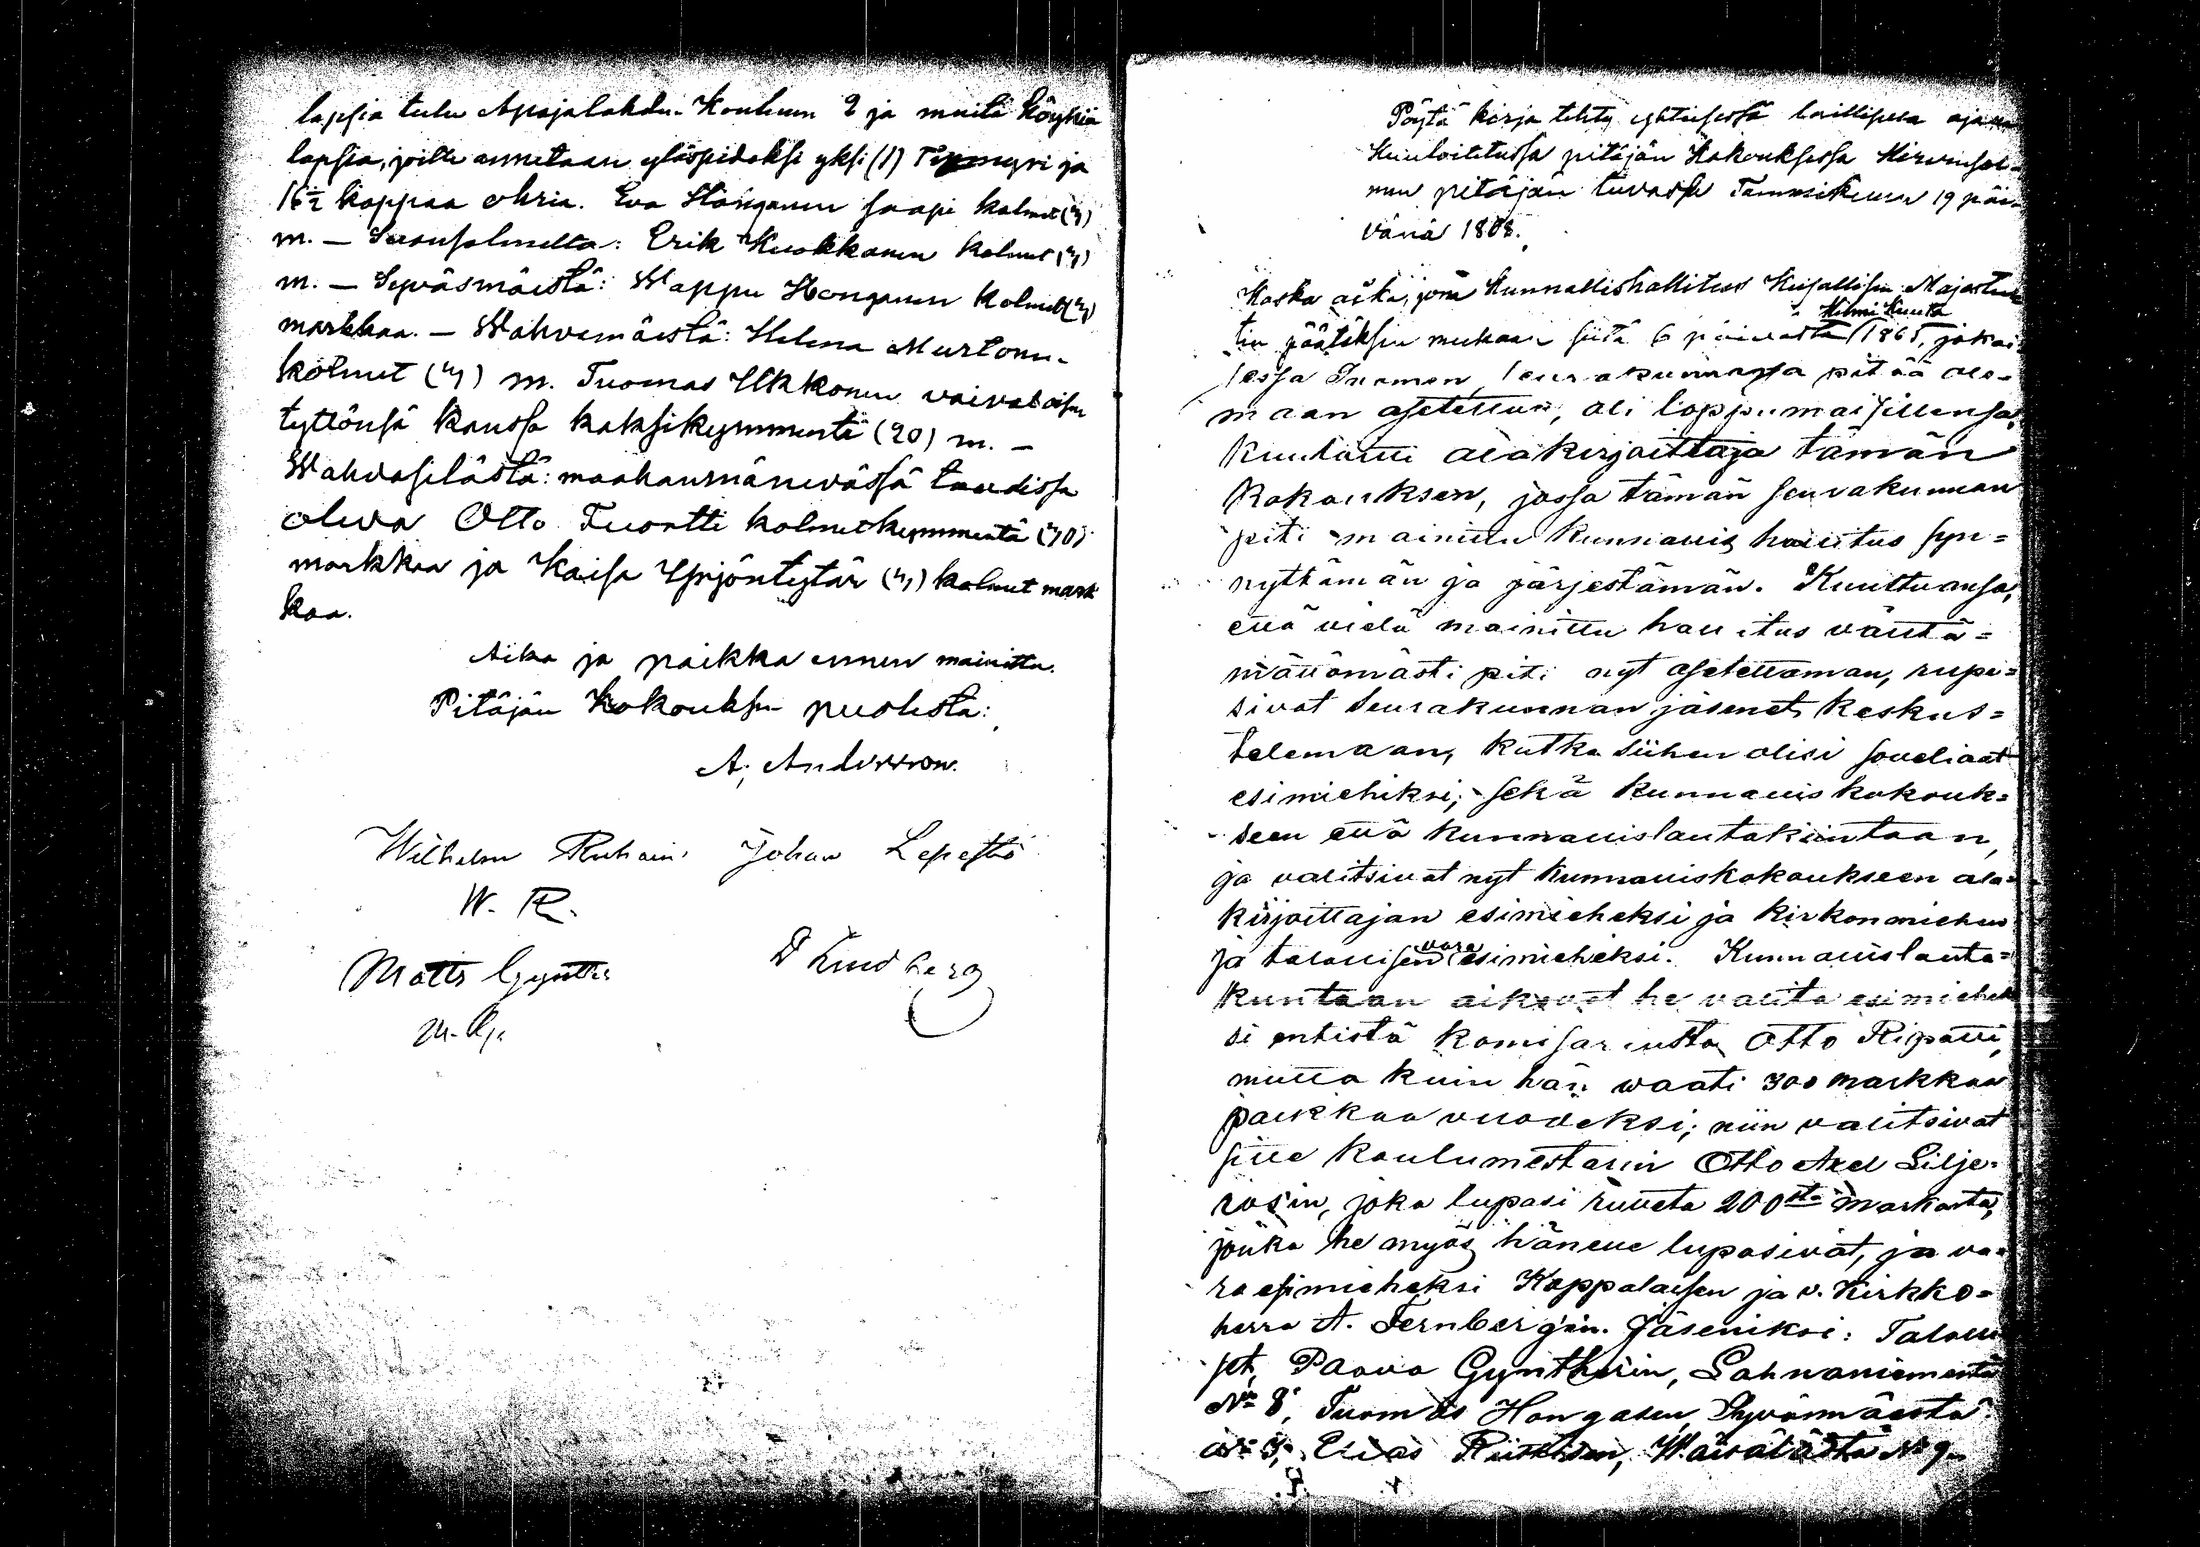 lapsia tulee Apajalahden Kouluun 2 ja muita köyhiä
lapsia, joille annetaan ylöspidoksi yksi (1) Tynnyri ja
16½ kappaa ohria. Eva Hänganen saapi kolmet (3)
m. — Savonsalmelta: Erik Kuokkanen kolmet (3)
m. — Syväsmäestä: Wappu Honganen kolmet (3)
markkaa. — Wahvamäestä: Helena Murtonen
kolmet (3) m. Tuomas Ukkonen vaivaloisen
tyttönsä kanssa kaksikymmentä (20) m. —
Wahvaselästä: maahanmänevässä taudissa
oleva Otto Tuovtti kolmetkymmentä (30)
markkaa ja Kaisa Yrjöntytär (3) kolmet mark
kaa.
Aika ja paikka ennen mainittu.
Pitäjän Kokouksen puolesta:
A. Andersson.
Wilhelm Ruhain Johan Lepestö
W. R.
Matts Gynther D Lindberg
M. G.
Pöytä kirja tehty yhteisessä laillisessa ajassa
Kuuloitetussa pitäjän Kokouksessa Hirvensal-
men pitäjän tuvassa Tammikuun 19 päi-
vänä 1868.
Koska aika, jona Kunnallishallitus Keisallisen Majestee
Helmi Kuuta
tin päätöksen mukaan siitä 6 päivästä 1865, jokai-
sessa Suomen seurakunnassa pitää ole-
maan asetettuna, oli loppumaisillensa,
Kuulutti alakirjoittaja tämän
Kokouksen, jossa tämän seurakunnan
piti mainittu kunnallis hallitus syn-
nyttämän ja järjestämän. Kuultuansa,
että vielä mainittu hallitus välttä-
mättömästi piti nyt asetettaman, rupe-
sivat seurakunnan jäsenet keskus-
telemaan, kutka siihen olisi soveliaat
esimiehiksi, sekä kunnallis kokouk-
seen että kunnallislautakuntaan,
ja valitsivat nyt kunnalliskokoukseen ala-
kirjoittajan esimieheksi ja kirkonmiehen
ja talollisen vara esimieheksi. Kunnallislauta-
kuntaan aikovat he valita esimiehek
si entistä komisariusta Otto Ripatti,
mutta kuin hän waati 300 markkaa
palkkaa vuodeksi; niin valitsivat
sille koulumestarin Otto Axel Lilje-
rosin, joka lupasi ruveta 200sta markasta,
jonka he myös hänelle lupasivat, ja va-
ra esimieheksi Kappalaisen ja v. Kirkko-
herra A. Fernbergin. Jäseniksi: Talolli
set, Paavo Gyntherin, Lahnaniemestä
No 8, Tuomas Hongasen Syväsmäestä
No 3, Elias Riikosen, Wäiväläestä No 9.